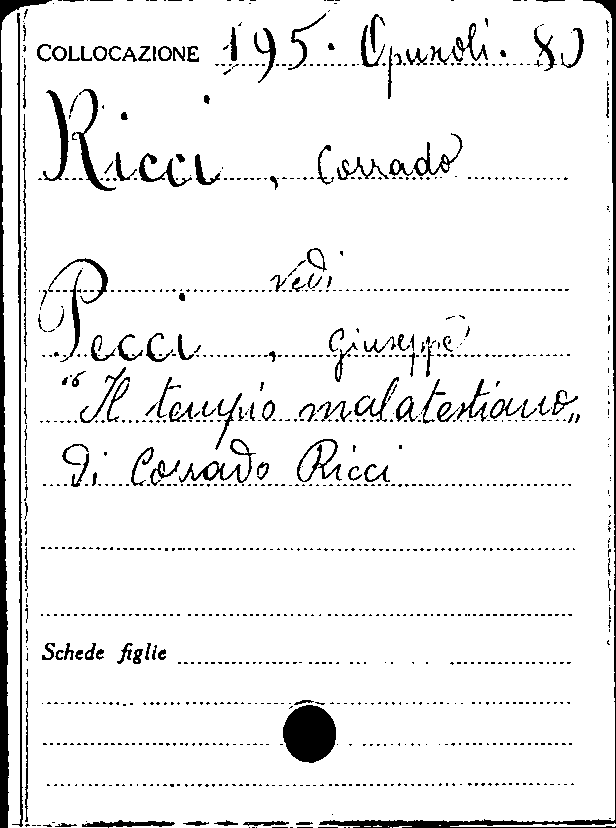 COLLOCAZIONE 195. Opuscoli. 80
Ricci, Corrado
vedi
Pecci, Giuseppe
"Il tempio malatestiano„
di Corrado Ricci
Schede figlie